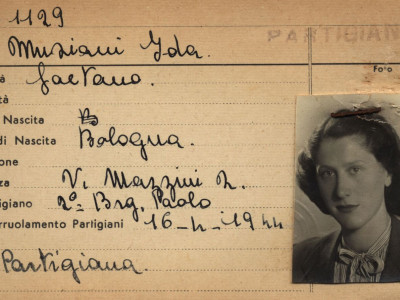 1129
PARTIGIAN
Musiani Ida.
Foto
tà Gaetano.
tà
Nascita B
di Nascita Bologna.
ione
za V. Mazzini 2.
tigiano 2° Brg. Paolo
rruolamento Partigiani 16-4-1944
Partigiana.